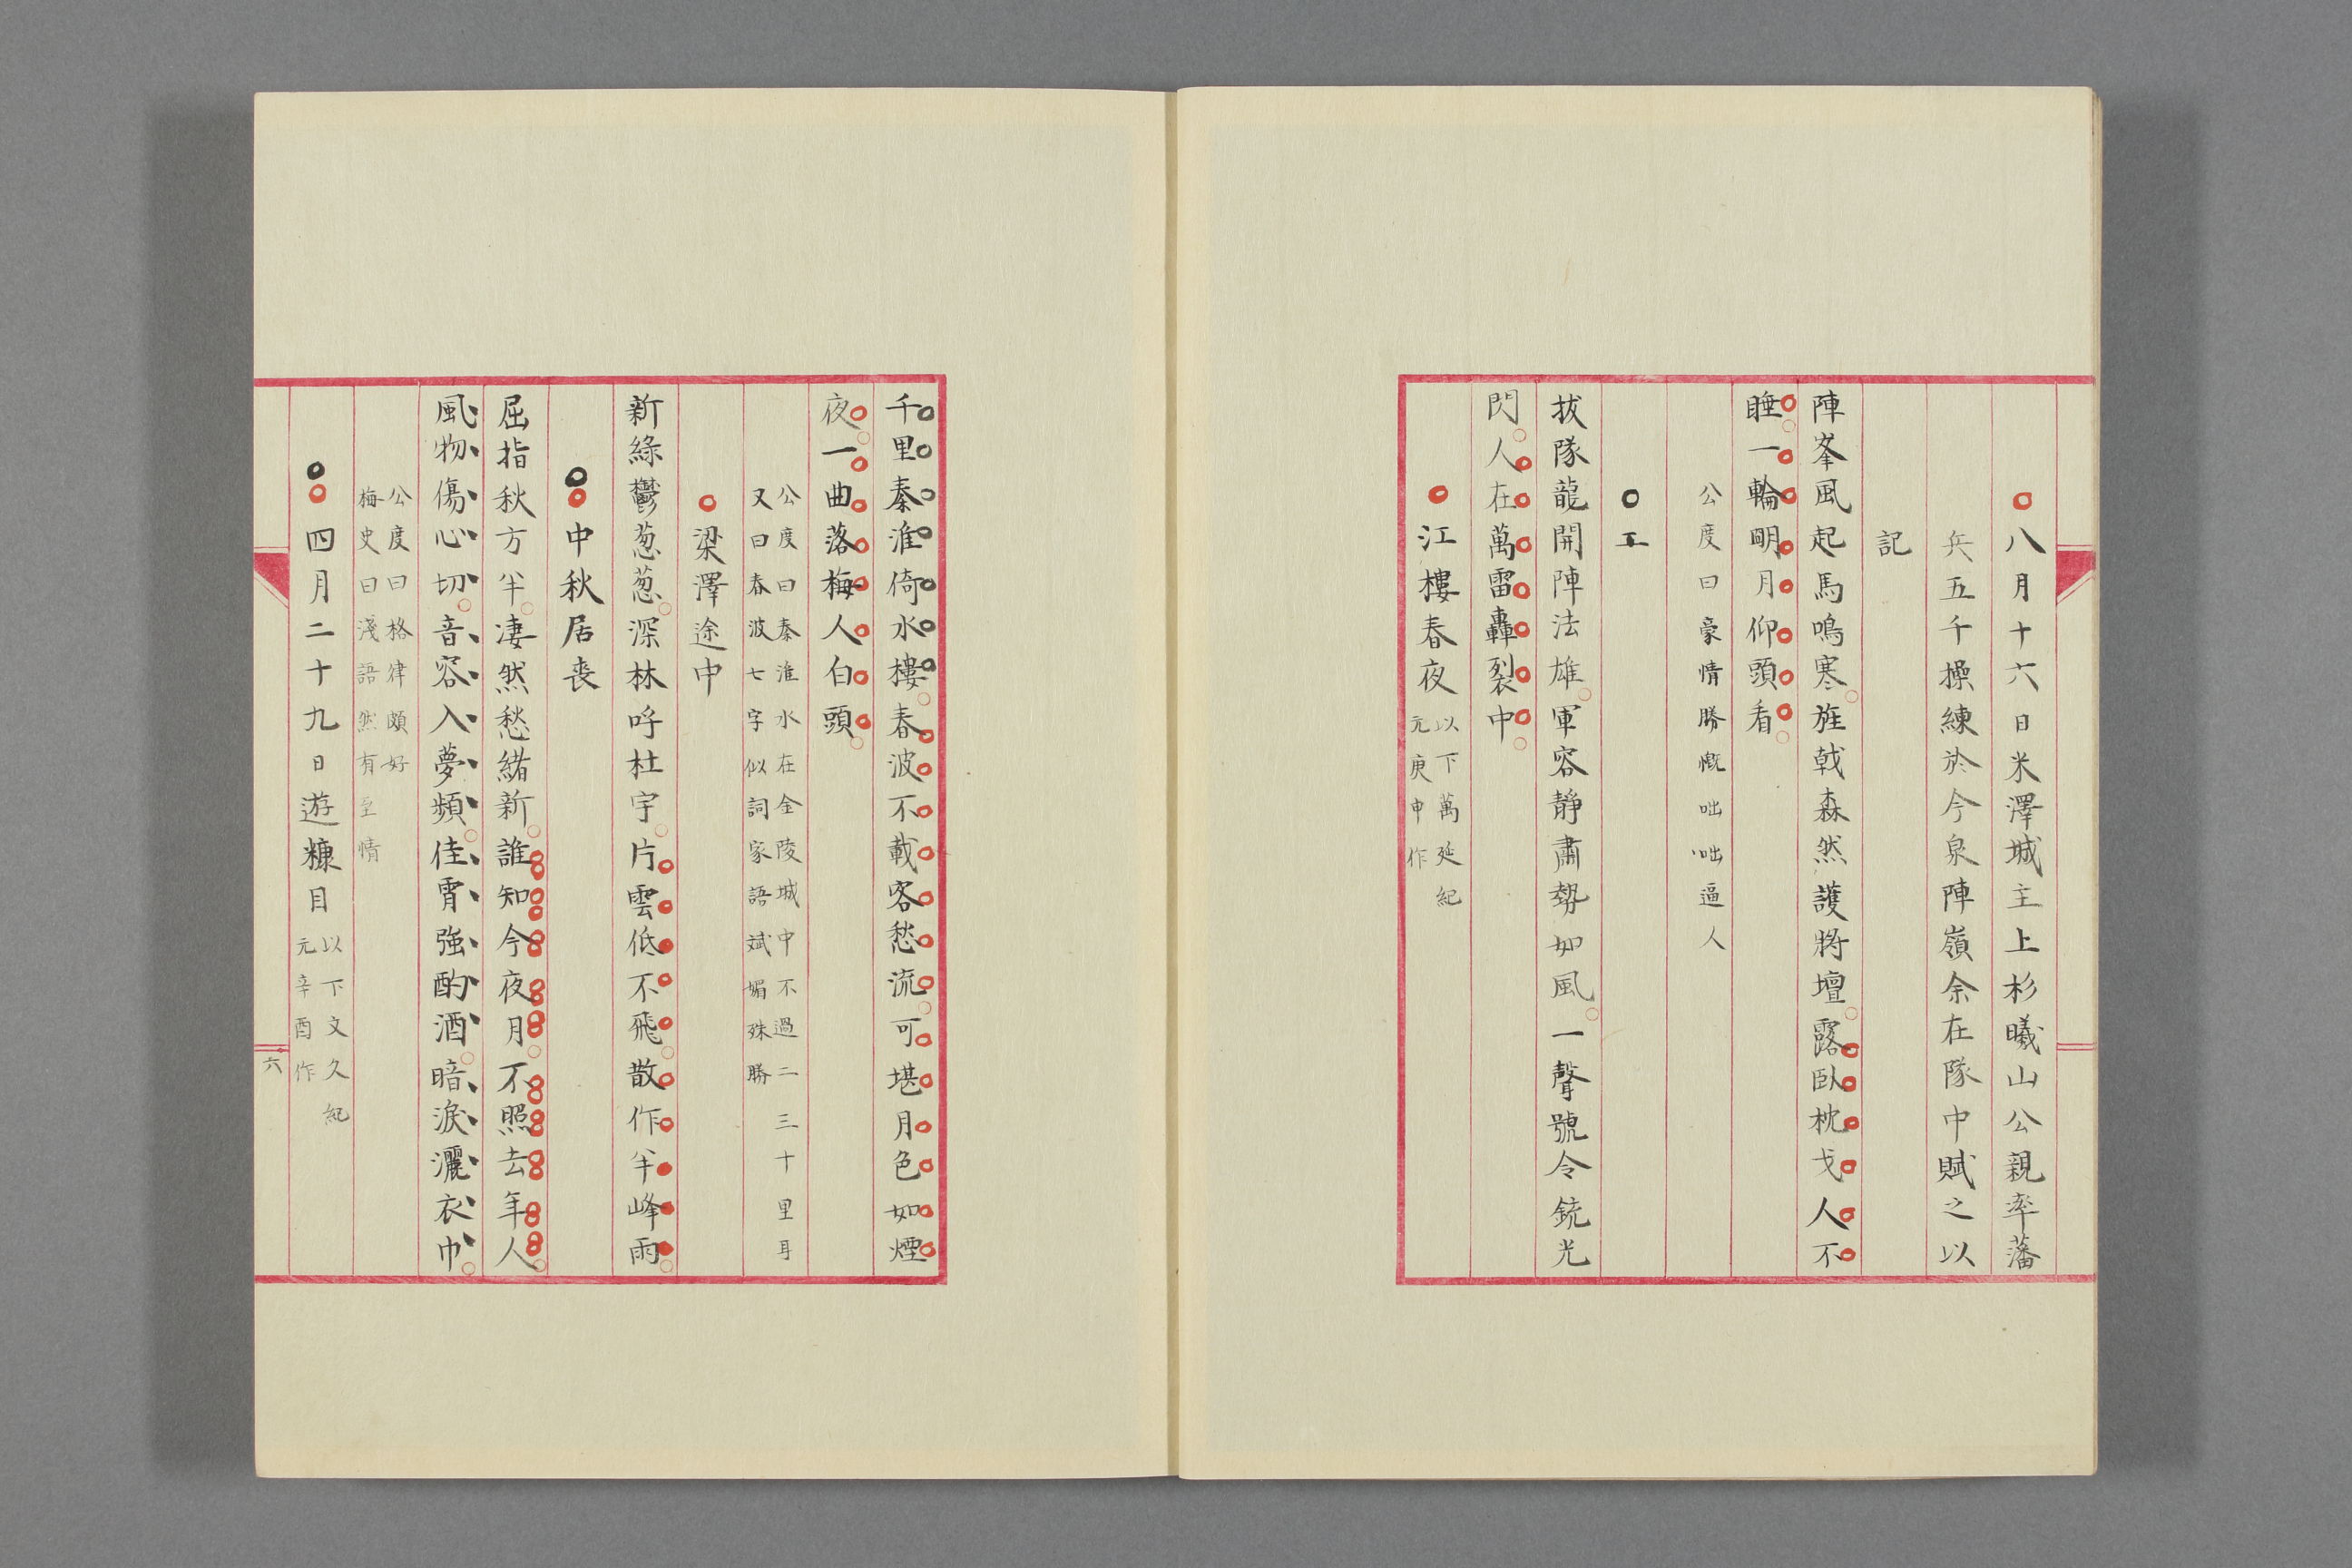 八月十六日米澤城主上杉曦山公親率藩
兵五千操練於今泉陣嶺余在隊中賦之以
記
陣峯風起馬鳴寒旌戟森然護將壇露臥枕戈人不
睡一輪明月仰頭看
公度曰豪情勝慨咄咄逼人
工
拔隊龍開陣法雄軍容靜肅勢如風一聲號令銃光
閃人在萬雷轟裂中
江樓春夜
以下萬延紀
元庚申作
千里秦淮倚水樓春波不載客愁流可堪月色如煙
夜一曲落梅人白頭
公度曰秦淮水在金陵城中不過二三十里耳
又曰春波七字似詞家語斌媚殊勝
梁澤途中
新綠鬱葱葱深林呼杜宇片雲低不飛散作半峰雨
中秋居喪
屈指秋方半凄然愁緒新誰知今夜月不照去年人
風物傷心切音容入夢頻佳宵強酌酒暗淚灑衣巾
公度曰格律頗好
梅史曰淺語然有至情
四月二十九日遊糠目
以下文久紀
元辛酉作
六